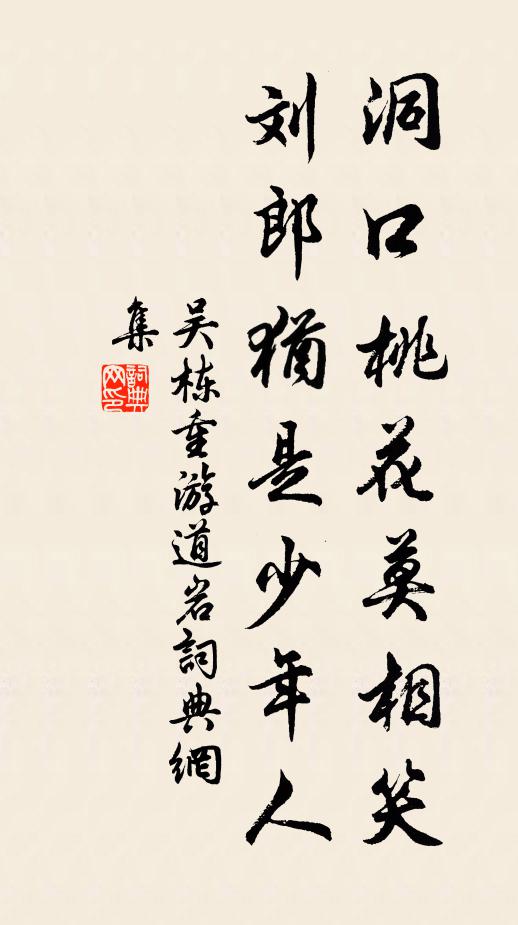 洞口桃花莫相笑
刘郎犹是少年人
吴栋重游道岩詞典網
集
詞典
网印